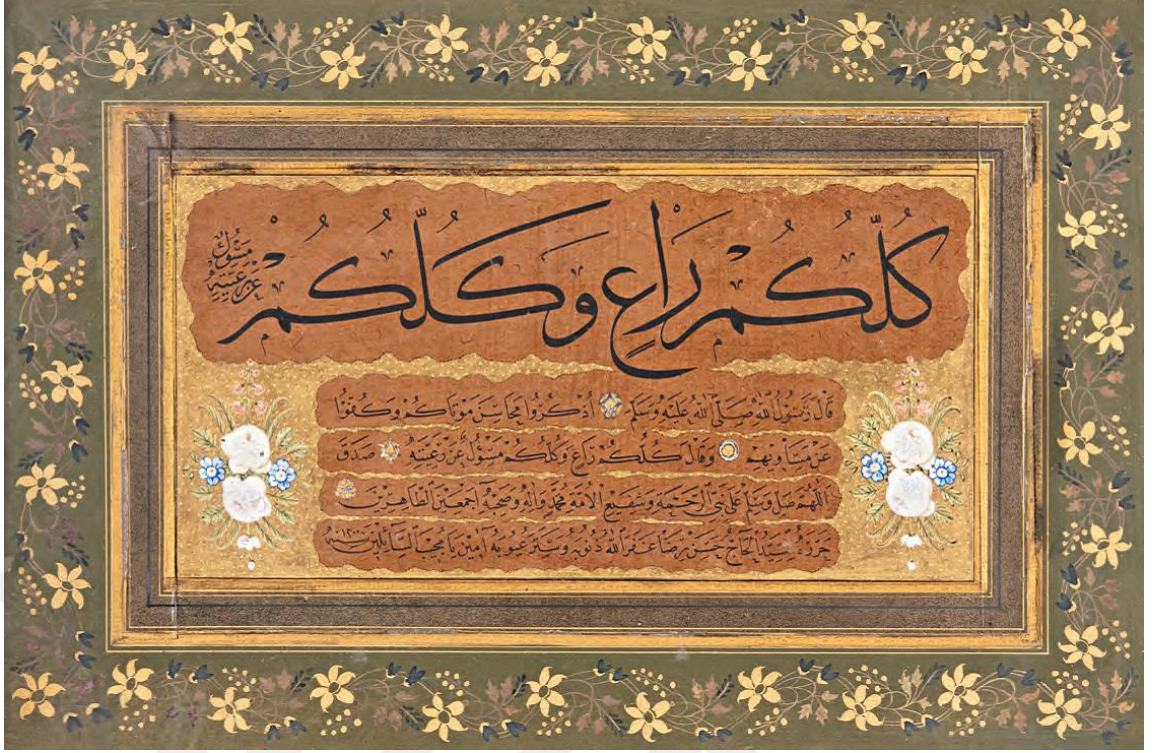 كُلُّكُمْ رَاعٍ وَكُلُّكُمْ
مَسْؤُلٌ
عَنْ رَعِيَّتِهِ
قَالَ رَسُولُ اللهِ صَلَّى اللهُ عَلَيْهِ وَسَلَّمَ اُذْكُرُوا مَحَاسِنَ مَوْتَاكُمْ وَكُفُّوا
عَنْ مَسَاوِيهِمْ وَقَالَ كُلُّكُمْ رَاعٍ وَكُلُّكُمْ مَسْؤُلٌ عَنْ رَعِيَّتِهِ صَدَقَ
اللهم صل وسلم على نبي الرحمة وشفيع الامة محمد وآله وصحبه اجمعين الطاهرين
حرره السيد الحاج حسن رضا غفر الله ذنوبه وستر عيوبه آمين يا مجيب السائلين سنة